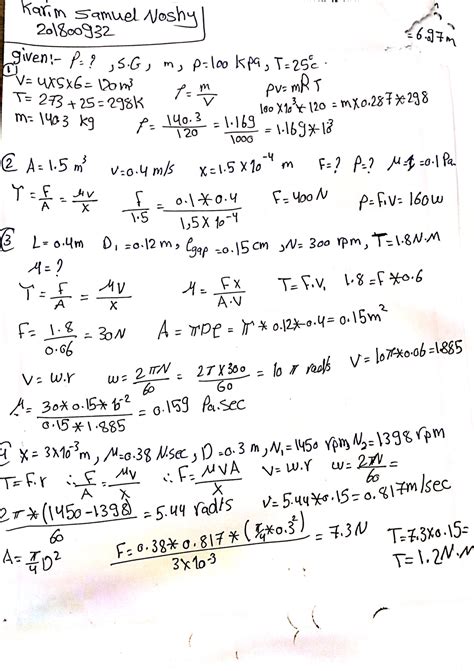 Karim Samuel Noshy
201800932
= 6.97m
given:- ρ=? , S.G, m, p=100 kpa, T=25c°
① V=4x5x6=120m³ ρ=m/V pv=mRT
T=273+25=298K 100x10³*120=mx0.287*298
m=140.3 kg ρ=140.3/120=1.169/1000=1.169*10⁻³
② A=1.5 m² v=0.4 m/s x=1.5x10⁻⁴ m F=? P=? μ=0.1Pa
τ=F/A=μv/x F/1.5=0.1*0.4/1.5x10⁻⁴ F=400N P=F.v=160w
③ L=0.4m D₁=0.12m, ℓgap=0.15cm, N=300 rpm, T=1.8N.M
μ=?
τ=F/A=μV/x μ=Fx/A.V T=F.r, 1.8=F*0.6
F=1.8/0.06=30N A=πDℓ=π*0.12*0.4=0.15m²
V=w.r w=2πN/60=2πx300/60=10π rad/s V=10π*0.06=1.885
μ=30*0.15*10⁻²/0.15*1.885=0.159 Pa.sec
4 x=3x10⁻³m, μ=0.38 N.sec, D=0.3m, N₁=1450 rpm, N₂=1398 rpm
T=F.r ∴F/A=μV/x ∴F=μVA/x V=w.r w=2πN/60=
2π*(1450-1398)/60=5.44 rad/s V=5.44*0.15=0.817m/sec
A=π/4D² F=0.38*0.817*(π/4*0.3²)/3x10⁻³=7.3N T=7.3x0.15=
T=1.2N.m